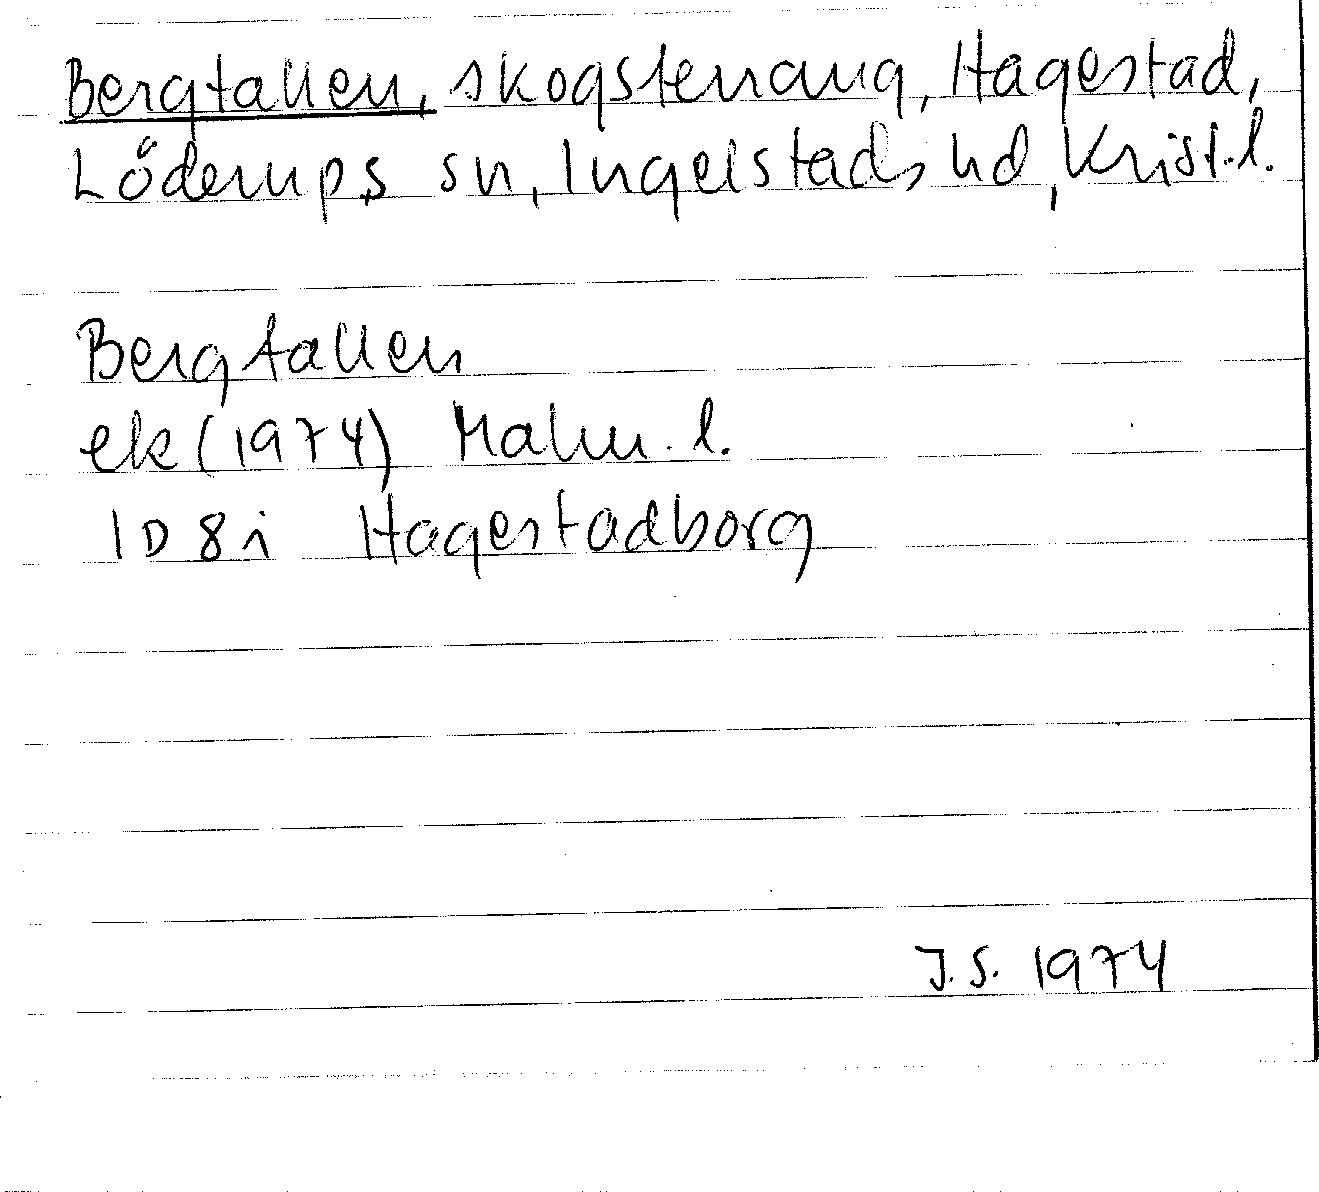 Bergtallen, skogsterräng, Hagestad,
Löderups sn, Ingelstads hd, Krist.l.
Bergtallen
ek (1974) Malm.l.
1D 8i Hagestadborg
J.S. 1974